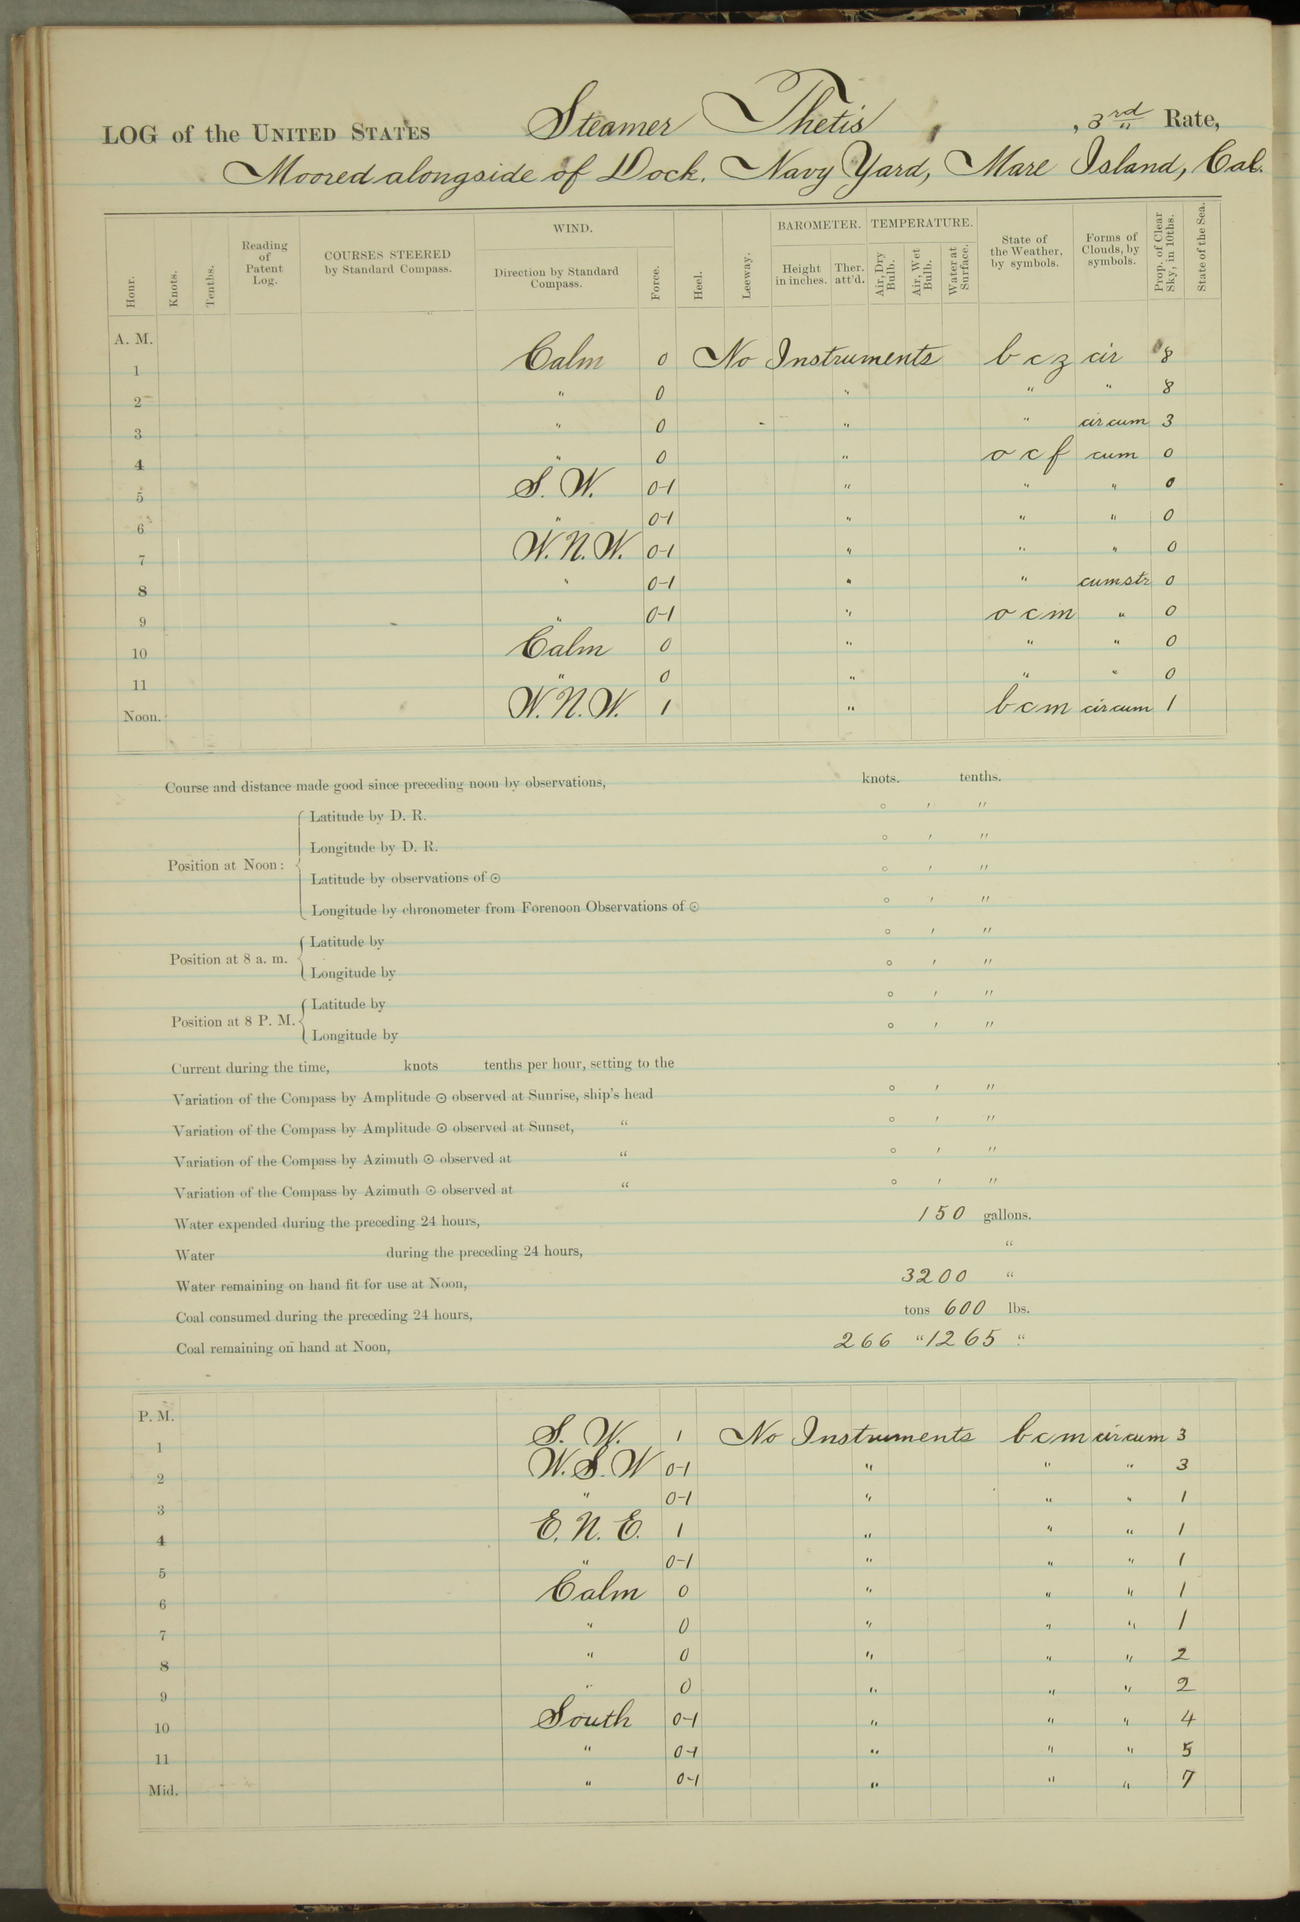 LOG of the UNITED STATES Steamer Thetis, , 3rd Rate,
Moored alongside of Dock. Navy Yard, Mare Island, Cal.
Hour. Knots. Tenths. Reading of Patent Log. COURSES STEERED by Standard Compass. WIND. Direction by Standard Compass. Force. Heel. Leeway. BAROMETER. Height in inches. Ther. att'd. TEMPERATURE. Air, Dry Bulb. Air, Wet Bulb. Water at Surface. State of the Weather, by symbols. Forms of Clouds, by symbols. Prop. of Clear Sky, in 10ths. State of the Sea.
A. M.
1 Calm 0 No Instruments b c z cir 8
2 " 0 " " " 8
3 " 0 " " cir cum 3
4 " 0 " o c f cum 0
5 S. W. 0-1 " " " 0
6 " 0-1 " " " 0
7 W. N. W. 0-1 " " " 0
8 " 0-1 " " cumstr 0
9 " 0-1 " o c m " 0
10 Calm 0 " " " 0
11 " 0 " " " 0
Noon. W. N. W. 1 " b c m cir cum 1
Course and distance made good since preceding noon by observations, knots. tenths.
Position at Noon:
Latitude by D. R. ° ′ ″
Longitude by D. R. ° ′ ″
Latitude by observations of ☉ ° ′ ″
Longitude by chronometer from Forenoon Observations of ☉ ° ′ ″
Position at 8 a. m.
Latitude by ° ′ ″
Longitude by ° ′ ″
Position at 8 P. M.
Latitude by ° ′ ″
Longitude by ° ′ ″
Current during the time, knots tenths per hour, setting to the
Variation of the Compass by Amplitude ☉ observed at Sunrise, ship's head ° ′ ″
Variation of the Compass by Amplitude ☉ observed at Sunset, " ° ′ ″
Variation of the Compass by Azimuth ☉ observed at " ° ′ ″
Variation of the Compass by Azimuth ☉ observed at " ° ′ ″
Water expended during the preceding 24 hours, 150 gallons.
Water during the preceding 24 hours, "
Water remaining on hand fit for use at Noon, 3200 "
Coal consumed during the preceding 24 hours, tons 600 lbs.
Coal remaining on hand at Noon, 266 " 1265 "
P. M.
1 S. W. 1 No Instruments b c m cir cum 3
2 W. S. W 0-1 " " " 3
3 " 0-1 " " " 1
4 E. N. E. 1 " " " 1
5 " 0-1 " " " 1
6 Calm 0 " " " 1
7 " 0 " " " 1
8 " 0 " " " 2
9 " 0 " " " 2
10 South 0-1 " " " 4
11 " 0-1 " " " 5
Mid. " 0-1 " " " 7